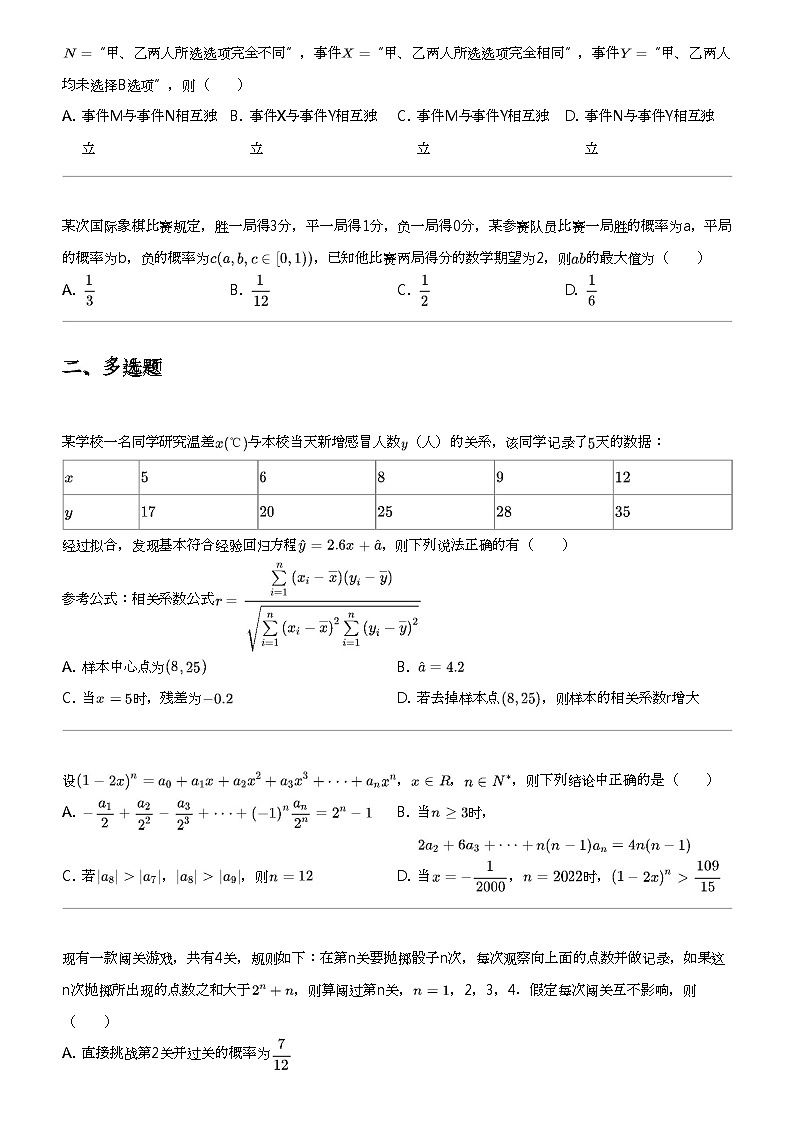 N = “甲、乙两人所选选项完全不同”，事件X = “甲、乙两人所选选项完全相同”，事件Y = “甲、乙两人
均未选择B选项”，则（　　）
A. 事件M与事件N相互独立 B. 事件X与事件Y相互独立 C. 事件M与事件Y相互独立 D. 事件N与事件Y相互独立
某次国际象棋比赛规定，胜一局得3分，平一局得1分，负一局得0分，某参赛队员比赛一局胜的概率为a，平局
的概率为b，负的概率为c(a, b, c ∈ [0, 1))，已知他比赛两局得分的数学期望为2，则ab的最大值为（　　）
A. 1/3 B. 1/12 C. 1/2 D. 1/6
二、多选题
某学校一名同学研究温差x(℃)与本校当天新增感冒人数y（人）的关系，该同学记录了5天的数据：
x 5 6 8 9 12
y 17 20 25 28 35
经过拟合，发现基本符合经验回归方程ŷ = 2.6x + â，则下列说法正确的有（　　）
参考公式：相关系数公式r = \frac{\sum_{i=1}^{n}(x_i - \overline{x})(y_i - \overline{y})}{\sqrt{\sum_{i=1}^{n}(x_i - \overline{x})^2 \sum_{i=1}^{n}(y_i - \overline{y})^2}}
A. 样本中心点为(8, 25) B. â = 4.2
C. 当x = 5时，残差为−0.2 D. 若去掉样本点(8, 25)，则样本的相关系数r增大
设(1 − 2x)^n = a_0 + a_1x + a_2x^2 + a_3x^3 + ··· + a_nx^n，x ∈ R，n ∈ N*，则下列结论中正确的是（　　）
A. −\frac{a_1}{2} + \frac{a_2}{2^2} − \frac{a_3}{2^3} + ··· + (−1)^n\frac{a_n}{2^n} = 2^n − 1 B. 当n ≥ 3时，
2a_2 + 6a_3 + ··· + n(n − 1)a_n = 4n(n − 1)
C. 若|a_8| > |a_7|，|a_8| > |a_9|，则n = 12 D. 当x = −\frac{1}{2000}，n = 2022时，(1 − 2x)^n > \frac{109}{15}
现有一款闯关游戏，共有4关，规则如下：在第n关要抛掷骰子n次，每次观察向上面的点数并做记录，如果这
n次抛掷所出现的点数之和大于2^n + n，则算闯过第n关，n = 1，2，3，4．假定每次闯关互不影响，则
（　　）
A. 直接挑战第2关并过关的概率为\frac{7}{12}